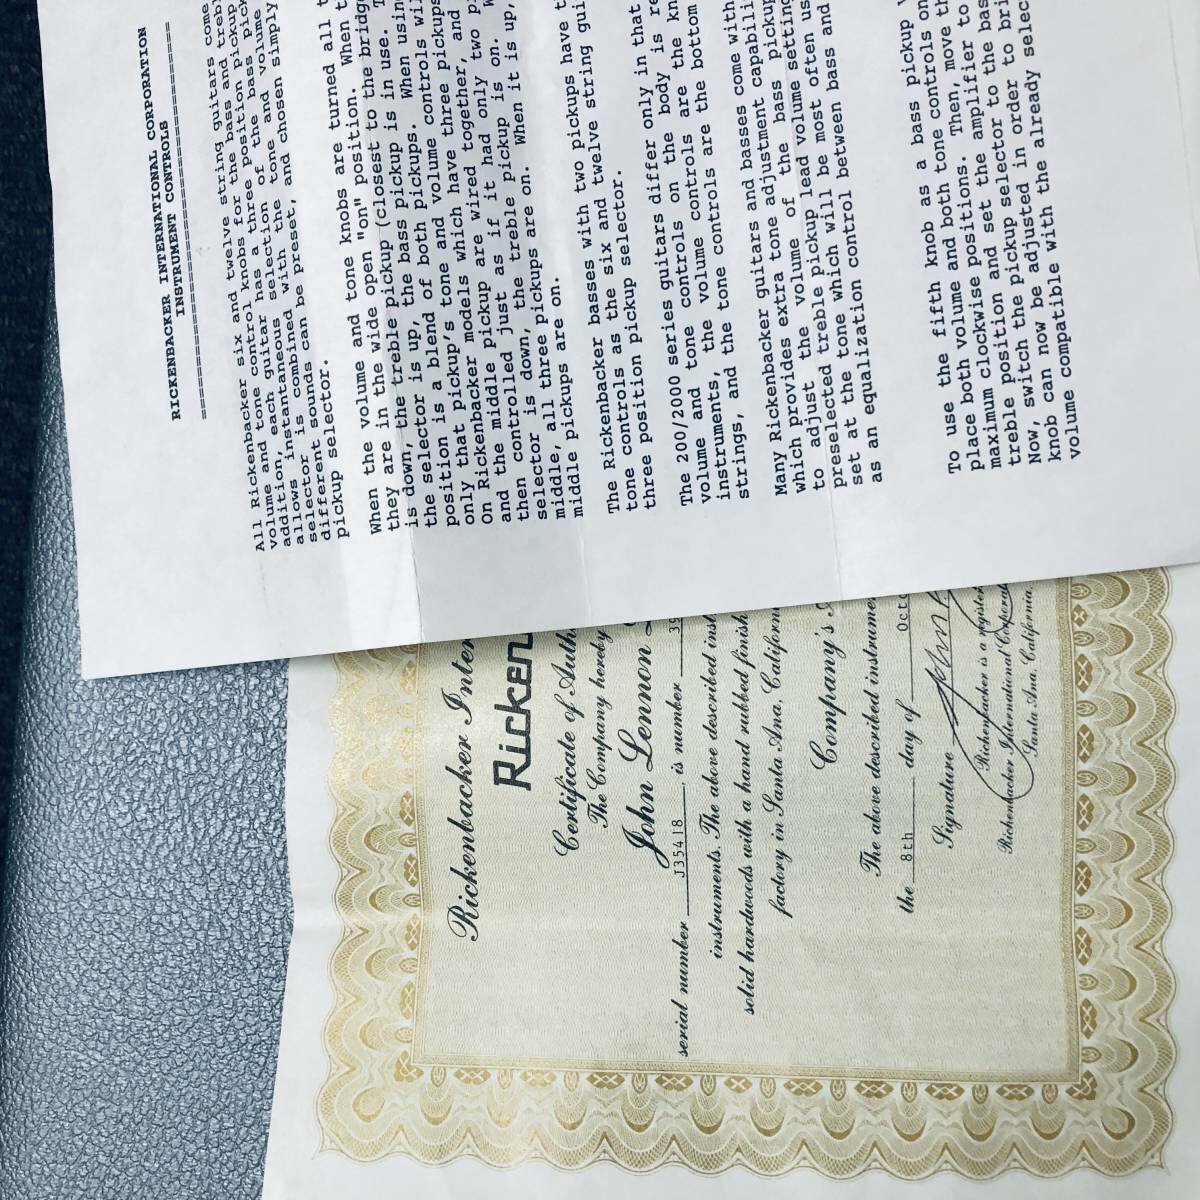 RICKENBACKER INTERNATIONAL CORPORATION
INSTRUMENT CONTROLS
All Rickenbacker six and twelve string guitars come
volume and tone control knobs for the bass and treb
addition, each guitar has a three position pickup
allows instantaneous selection of the bass pick
selector is combined with the tone and volume
different sounds can be preset, and chosen simply
pickup selector.
When the volume and tone knobs are turned all t
they are in the wide open "on" position. When t
is down, the treble pickup (closest to the bridg
the selector is up, the bass pickup is in use. T
position is a blend of both pickups. When using
only that pickup's tone and volume controls wil
on Rickenbacker models which have three pickups
and the middle pickup are wired together, and
then controlled just as if it had only two pi
selector is down, the treble pickup is on. W
middle, all three pickups are on. When it is up,
middle pickups are on.
The Rickenbacker basses with two pickups have t
tone controls as the six and twelve string gui
three position pickup selector.
The 200/2000 series guitars differ only in that
volume and tone controls on the body is re
instruments, the volume controls are the kn
strings, and the tone controls are the bottom
Many Rickenbacker guitars and basses come with
which provides extra tone adjustment capabili
to adjust the volume of the bass pickup
preselected treble pickup lead volume setting
set at the tone which will be most often us
as an equalization control between bass and
To use the fifth knob as a bass pickup v
place both volume and both tone controls on
maximum clockwise positions. Then, move th
treble position and set the amplifier to
Now, switch the pickup selector to the bas
knob can now be adjusted in order to bri
volume compatible with the already selec
Rickenbacker Inter
Ricken
Certificate of Auth
The Company hereby
John Lennon
serial number J35418, is number 39
instruments. The above described inst
solid hardwoods with a hand rubbed finish
factory in Santa Ana, Californi
Company's
The above described instrume
the 8th day of Octo
Signature
Rickenbacker is a register
Rickenbacker International Corporat
Santa Ana, California.